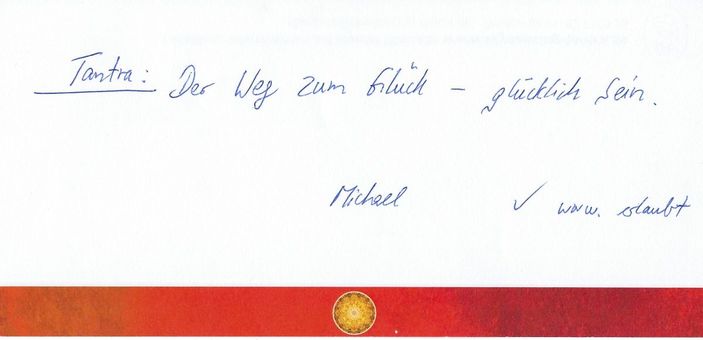 Tantra: Der Weg zum Glück – glücklich sein.
Michael ✓ www. erlaubt